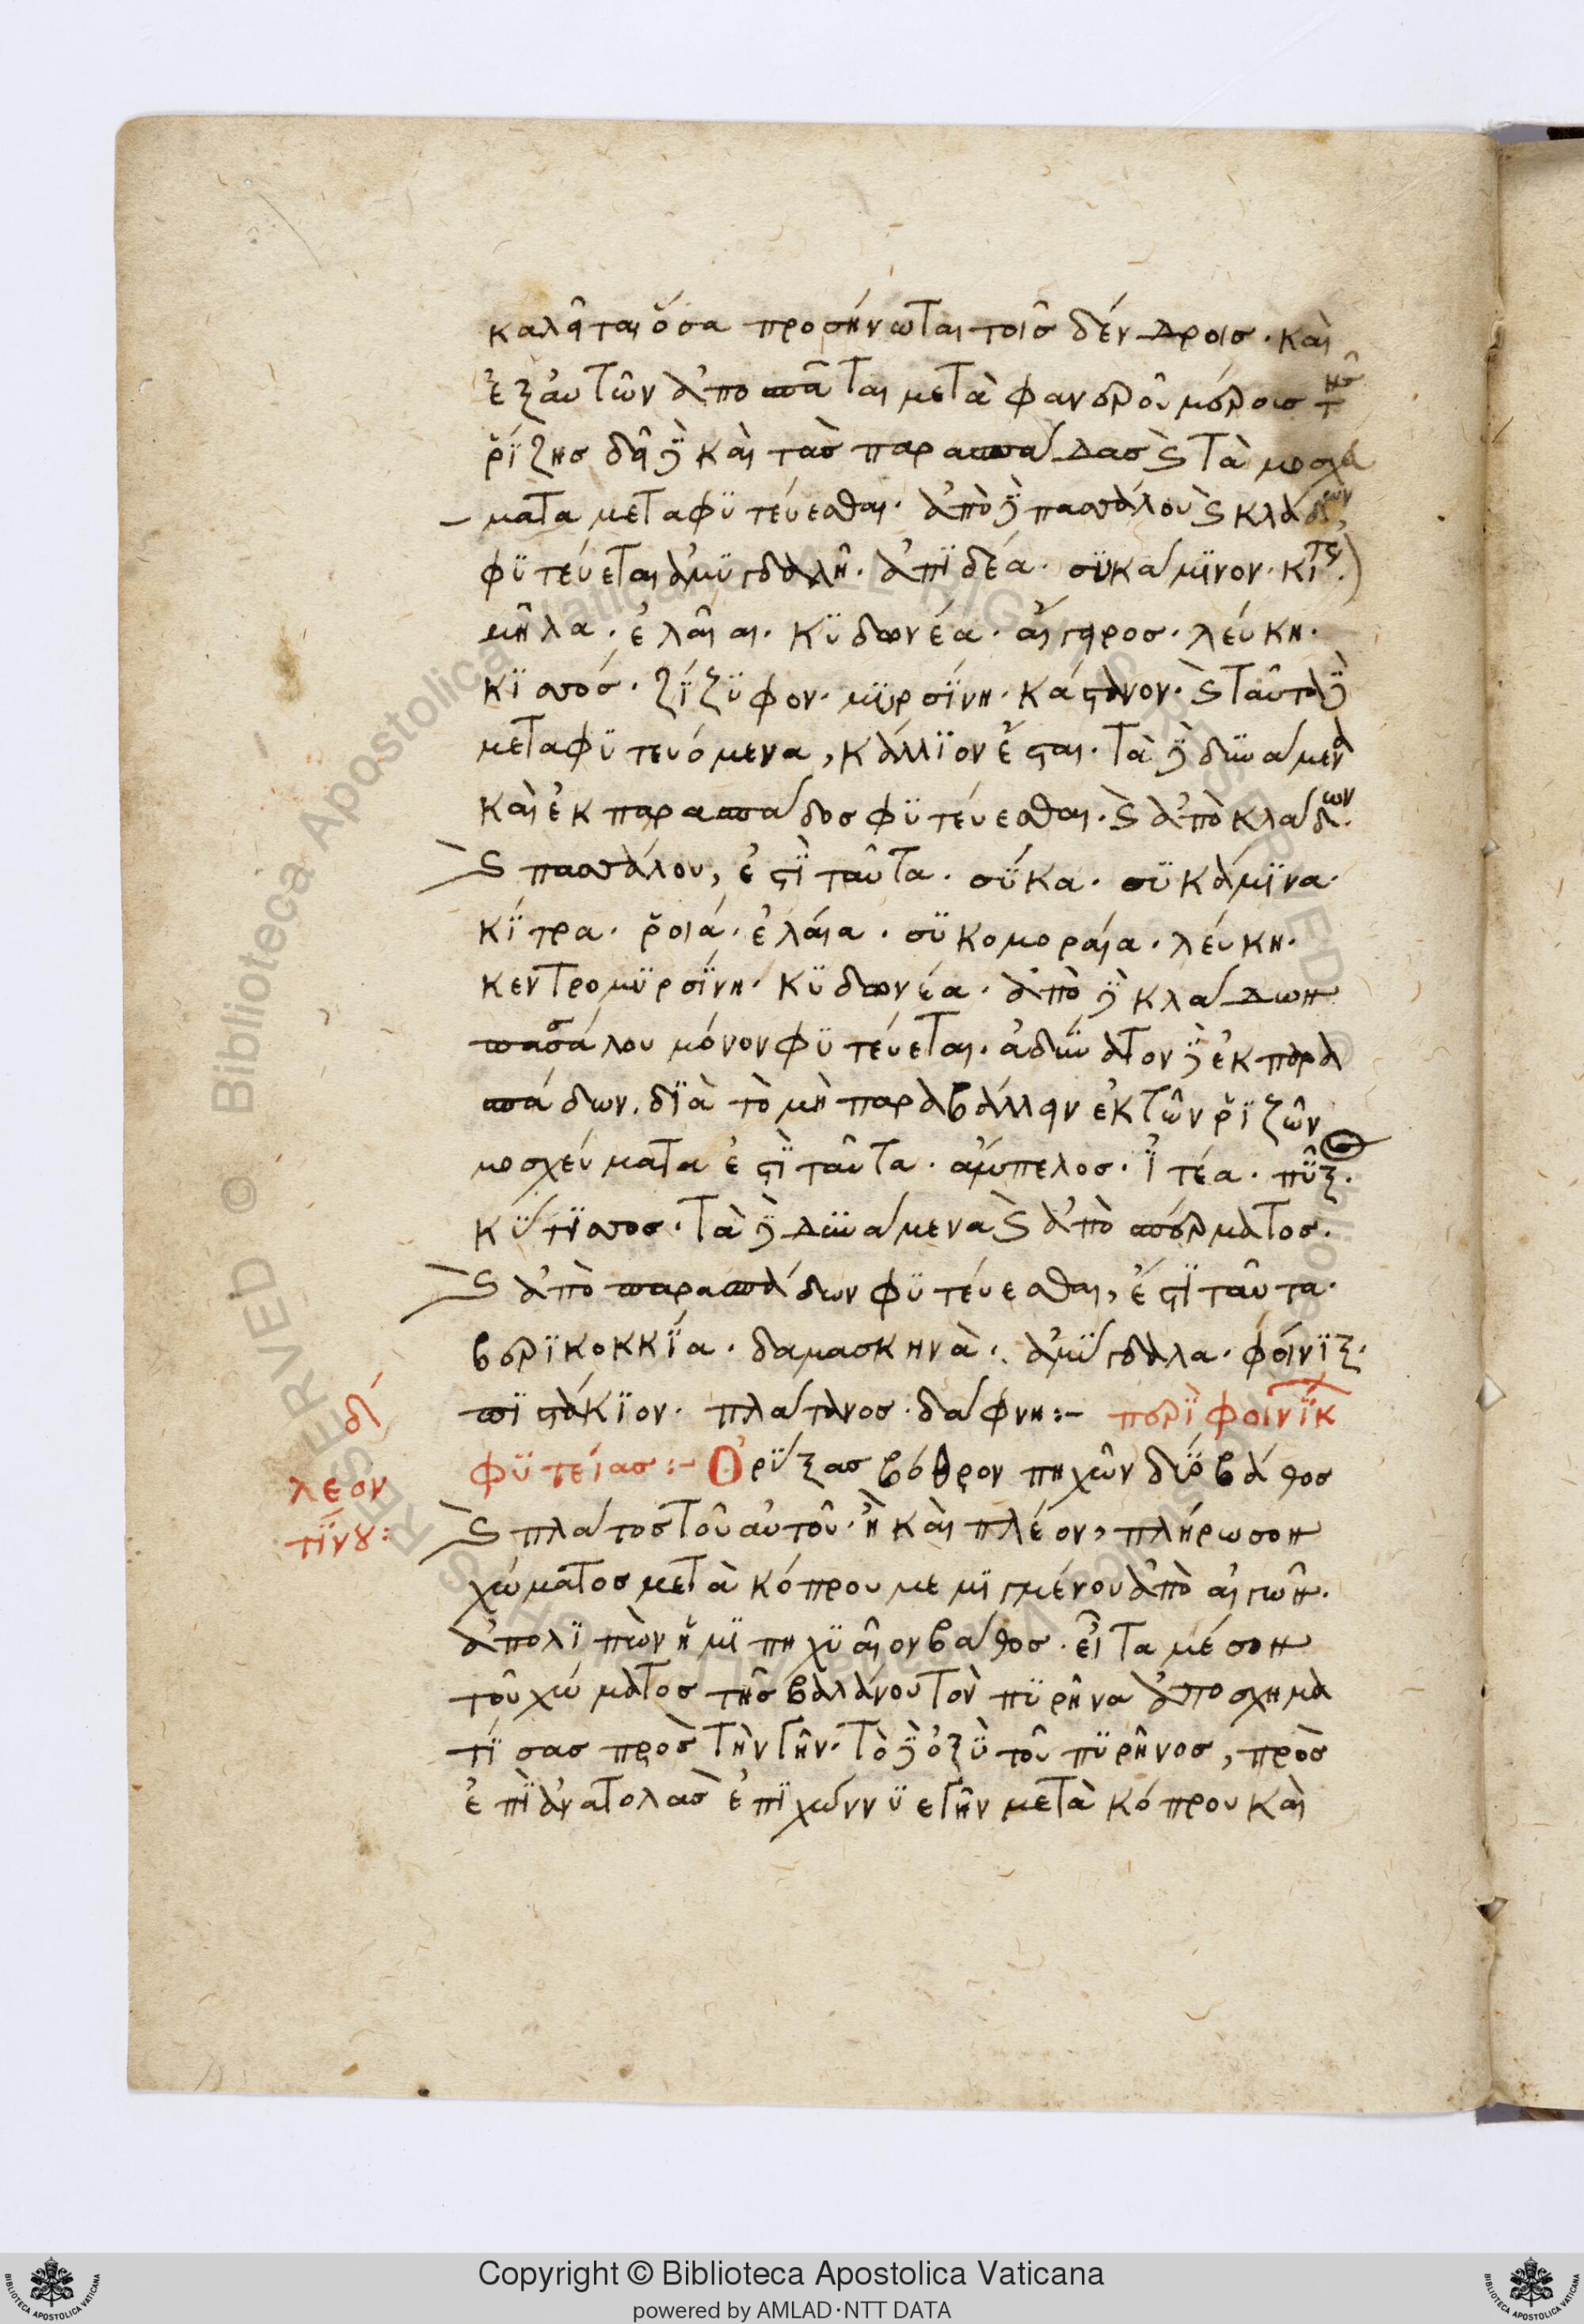 καλεῖται ὅσα προσήνωται τοῖς δένδροις· καὶ
ἐξ αυτῶν ἀποσπᾶται μετὰ φανεροῦ μέρους τῆς
ῥίζης δεῖ δὲ καὶ τὰς παρασπάδας καὶ τὰ μοσχεύ
ματα μεταφϋτεύεσθαι· ἀπὸ δὲ πασσάλου καὶ κλάδων
φϋτεύεται ἀμϋγδαλῆ· ἀπϊδέα· σϋκάμϊνον· κιτρ
μῆλα· ἐλαῖαι· κϋδωνέα· αἴγειρος· λεύκη·
κϊσσός· ζίζϋφον· μϋρσίνη· κάστανον· καὶ ταῦτα δὲ
μεταφϋτευόμενα, κάλλϊον ἔσται· τὰ δὲ δϋνάμενα
καὶ ἐκ παρασπάδος φϋτεύεσθαι· καὶ ἀπὸ κλάδων·
καὶ πασσάλου, ἐστὶ ταῦτα· σύκα· σϋκάμϊνα·
κίτρα· ῥοιά· ἐλαία· σϋκομοραία· λεύκη·
κεντρομϋρσίνη· κϋδωνέα· ἀπὸ δὲ κλάδων
πασσάλου μόνον φϋτεύεται· ἀδϋνατον δὲ ἐκ παρα
σπάδων· δϊὰ τὸ μὴ παραβάλλειν ἐκ τῶν ῥϊζῶν
μοσχεύματα ἐστὶ ταῦτα· ἄμπελος· ἰτέα· πῦξος·
κύτϊσσος· τὰ δὲ δϋνάμενα καὶ ἀπὸ σπέρματος·
καὶ ἀπὸ παρασπάδων φϋτεύεσθαι, ἐστὶ ταῦτα·
βερϊκοκκία· δαμασκηνὰ· ἀμύγδαλα· φοίνϊξ·
πϊστάκϊον· πλάτανος· δάφνη:- περὶ φοινίκ
φϋτείας:- Ὀρύξας βόθρον πηχῶν δύο βάθος
καὶ πλάτος τοῦ αὐτοῦ· ἢ καὶ πλέον, πλήρωσον
χώματος μετὰ κόπρου μεμϊγμένου ἀπὸ αἰγῶν·
ἀπολϊπὼν ἡμϊπηχϋαῖον βάθος· εἶτα μέσον
τοῦ χώματος τῆς βαλάνου τὸν πϋρῆνα ἀποσχημα
τίσας πρὸς τὴν γῆν· τὸ δὲ ὀξὺ τοῦ πϋρῆνος, πρὸς
ἐπὶ ἀνατολὰς ἐπϊχώννϋε γῆν μετὰ κόπρου καὶ
δί
λεον
τίνου:
Copyright © Biblioteca Apostolica Vaticana
powered by AMLAD·NTT DATA